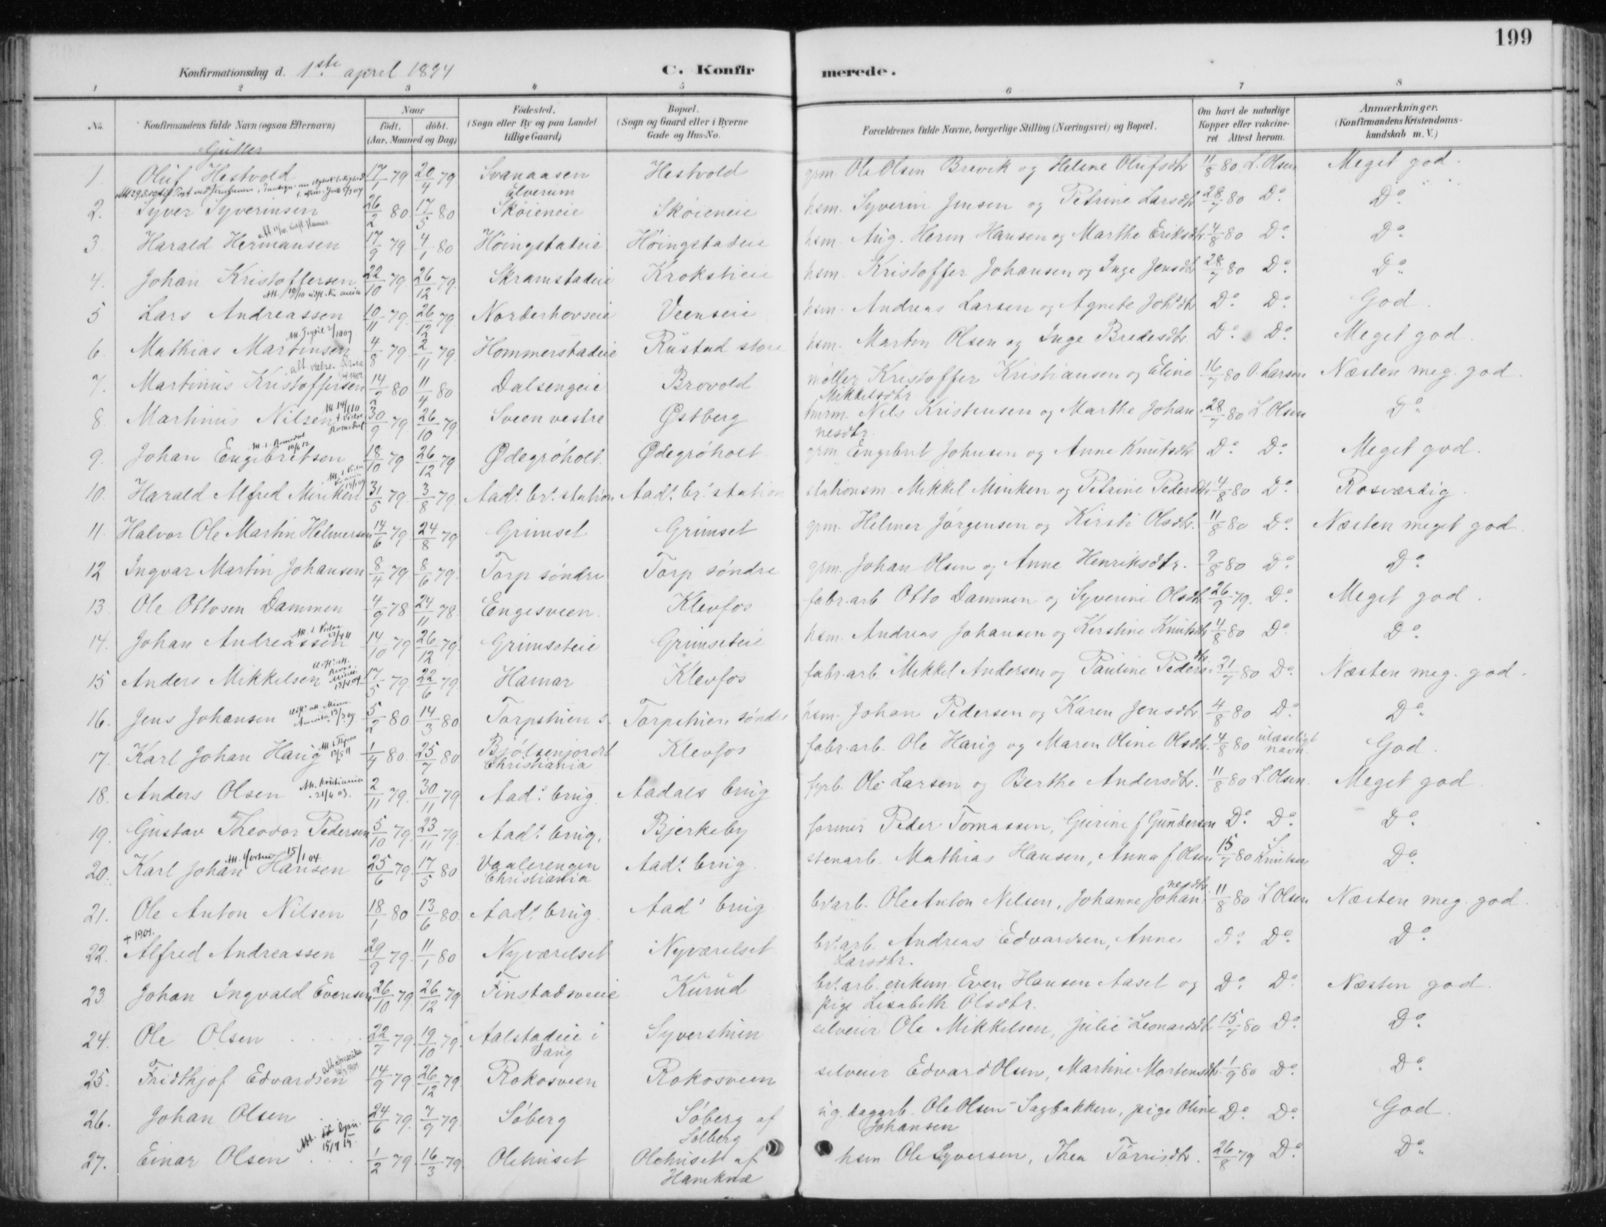 199
Konfirmationsdag d. 1ste april 1894 C. Konfirmerede.
1 2 3 4 5 6 7 8
No. Konfirmandens fulde Navn (ogsaa Efternavn) Naar født. døbt. (Aar, Maaned og Dag) Fødested. (Sogn eller By og paa Landet tillige Gaard) Bopæl. (Sogn og Gaard eller i Byerne Gade og Hus-No. Forældrenes fulde Navne, borgerlige Stilling (Næringsvei) og Bopæl. Om havt de naturlige Kopper eller vaccineret. Attest herom. Anmærkninger. (Konfirmandens Kristendomskundskab m. V.)
Gutter
1. Oluf Hestvold 17/1 79 20/4 79 Svanaasen Elverum Hestvold grm. Ole Olsen Brevik og Helene Olufsdtr 11/8 80 L. Olsen Meget god.
2. Syver Syverinsen 26/2 80 17/5 80 Skøieneie Skøieneie hsm. Syverin Jensen og Petrine Larsdtr 28/7 80 Do. Do.
3 Harald Hermansen 17/9 79 4/1 80 Høingstadeie Høingstadeie hsm. Aug. Herm Hansen og Marthe Eriksdtr 4/8 80 Do. Do.
4. Johan Kristoffersen 22/10 79 26/12 79 Skramstadeie Krokstieie hsm. Kristoffer Johansen og Inge Jensdtr 28/7 80 Do. Do.
5 Lars Andreassen 10/11 79 26/12 79 Norderhovseie Veenseie hsm. Andreas Larsen og Agnete Johsdtr Do. Do. God.
6. Mathias Martinsen 4/8 79 2/11 79 Hommerstadeie Rustad store hsm. Martin Olsen og Inge Bredesdtr Do. Do. Meget god.
7. Martinus Kristoffersen 14/2 80 11/4 80 Dalsengeie Brovold møller Kristoffer Kristiansen og Eline Mikkelsdtr 16/7 80 O Larsen Næsten meg. god
8 Martinus Nilsen 30/9 79 26/10 79 Sveen vestre Østberg Nils Kristensen og Marthe Johannesdtr. 28/7 80 L. Olsen Do.
9. Johan Engebretsen 18/10 79 26/12 79 Ødegrøholt Ødegrøholt grm. Engebret Johnsen og Anne Knutsdtr Do. Do. Meget god.
10. Harald Alfred Minken 31/5 79 3/8 79 Aads. br. station Aads. br. station stationsm. Mikkel Minken og Petrine Pedersdtr 4/8 80 Do. Rosværdig.
11. Halvor Ole Martin Helmersen 14/6 79 24/8 79 Grimset Grimset grm. Helmer Jørgensen og Kirsti Olsdtr. 11/8 80 Do. Næsten meget god.
12 Ingvar Martin Johansen 8/4 79 8/6 79. Torp søndre Torp søndre grm. Johan Olsen og Anne Henriksdtr. ?/8 80 Do. Do.
13. Ole Ottosen Dammen 4/9 78 24/11 78 Engesveen Klevfos fabr.arb. Otto Dammen og Syverine Olsdtr 26/9 79. Do. Meget god.
14. Johan Andreassen 14/10 79 26/12 79. Grimseteie Grimseteie hsm. Andreas Johansen og Kerstine Knutsdtr 11/8 80 Do. Do.
15 Anders Mikkelsen 17/5 79 22/6 79 Hamar Klevfos fabr.arb. Mikkel Andersen og Pauline Pedersdtr 21/7 80 Do. Næsten meg. god.
16. Jens Johansen 5/2 80 14/3 80 Torpstuen s. Torpstuen søndre hsm. Johan Pedersen og Karen Jensdtr 4/8 80 Do. Do.
17. Karl Johan Haug 1/4 80. 25/7 80 Bjølsenjordet Christiania Klevfos fabr.arb. Ole Haug og Maren Oline Olsdtr. 4/8 80 ulæseligt navn. God.
18. Anders Olsen 2/11 79. 30/11 79 Aads. brug. Aadals brug fyrb. Ole Larsen og Berthe Andersdtr. 11/8 80 L. Olsen. Meget god
19. Gustav Theodor Pedersen 5/10 79. 23/11 79 Aads. brug. Bjerkeby former Peder Tomassen, Gurine f Gundersen Do. Do. Do.
20. Karl Johan Hansen 25/6 79. 17/5 80 Vaalerengen Christiania Aads. brug. stenarb. Mathias Hansen, Anna f Olsen 15/7 80 L Knutsen Do.
21. Ole Anton Nilsen 18/1 80 13/6 80 Aads. brug. Aads. brug br.arb. Ole Anton Nilsen, Johanne Johannesdtr. 11/8 80 L Olsen Næsten meg. god.
22. + 1901. Alfred Andreassen 29/9 79. 11/1 80 Nyværelset Nyværelset br.arb. Andreas Edvardsen, Anne Larsdtr. Do. Do. Do.
23 Johan Ingvald Evensen 26/10 79 26/12 79 Finstadsveeie Kurud br.arb. enkem. Even Hansen Aaset og pige Lisabeth Olsdtr. Do. Do. Næsten god.
24. Ole Olsen 22/7 79. 19/10 79. Aalstadeie i Vang Syverstuen selveier Ole Mikkelsen, Julie Leonardsdtr 15/7 80 Do. Do.
25. Fridthjof Edvardsen 14/9 79 26/12 79 Rokosveen Rokosveen selveier Edvard Olsen, Martine Mortensdtr 1/9 80 Do. Do.
26. Johan Olsen 24/6 79. 7/9 79 Søberg Søberg af Solberg ug. dagarb. Ole Olsen Sagbakken, pige Oline Johansen Do. Do. God.
27. Einar Olsen 1/2 79. 16/3 79 Olehuset Olehuset af Hamknæ hsm Ole Syversen, Thea Torrisdtr. 26/8 79 Do. Do.